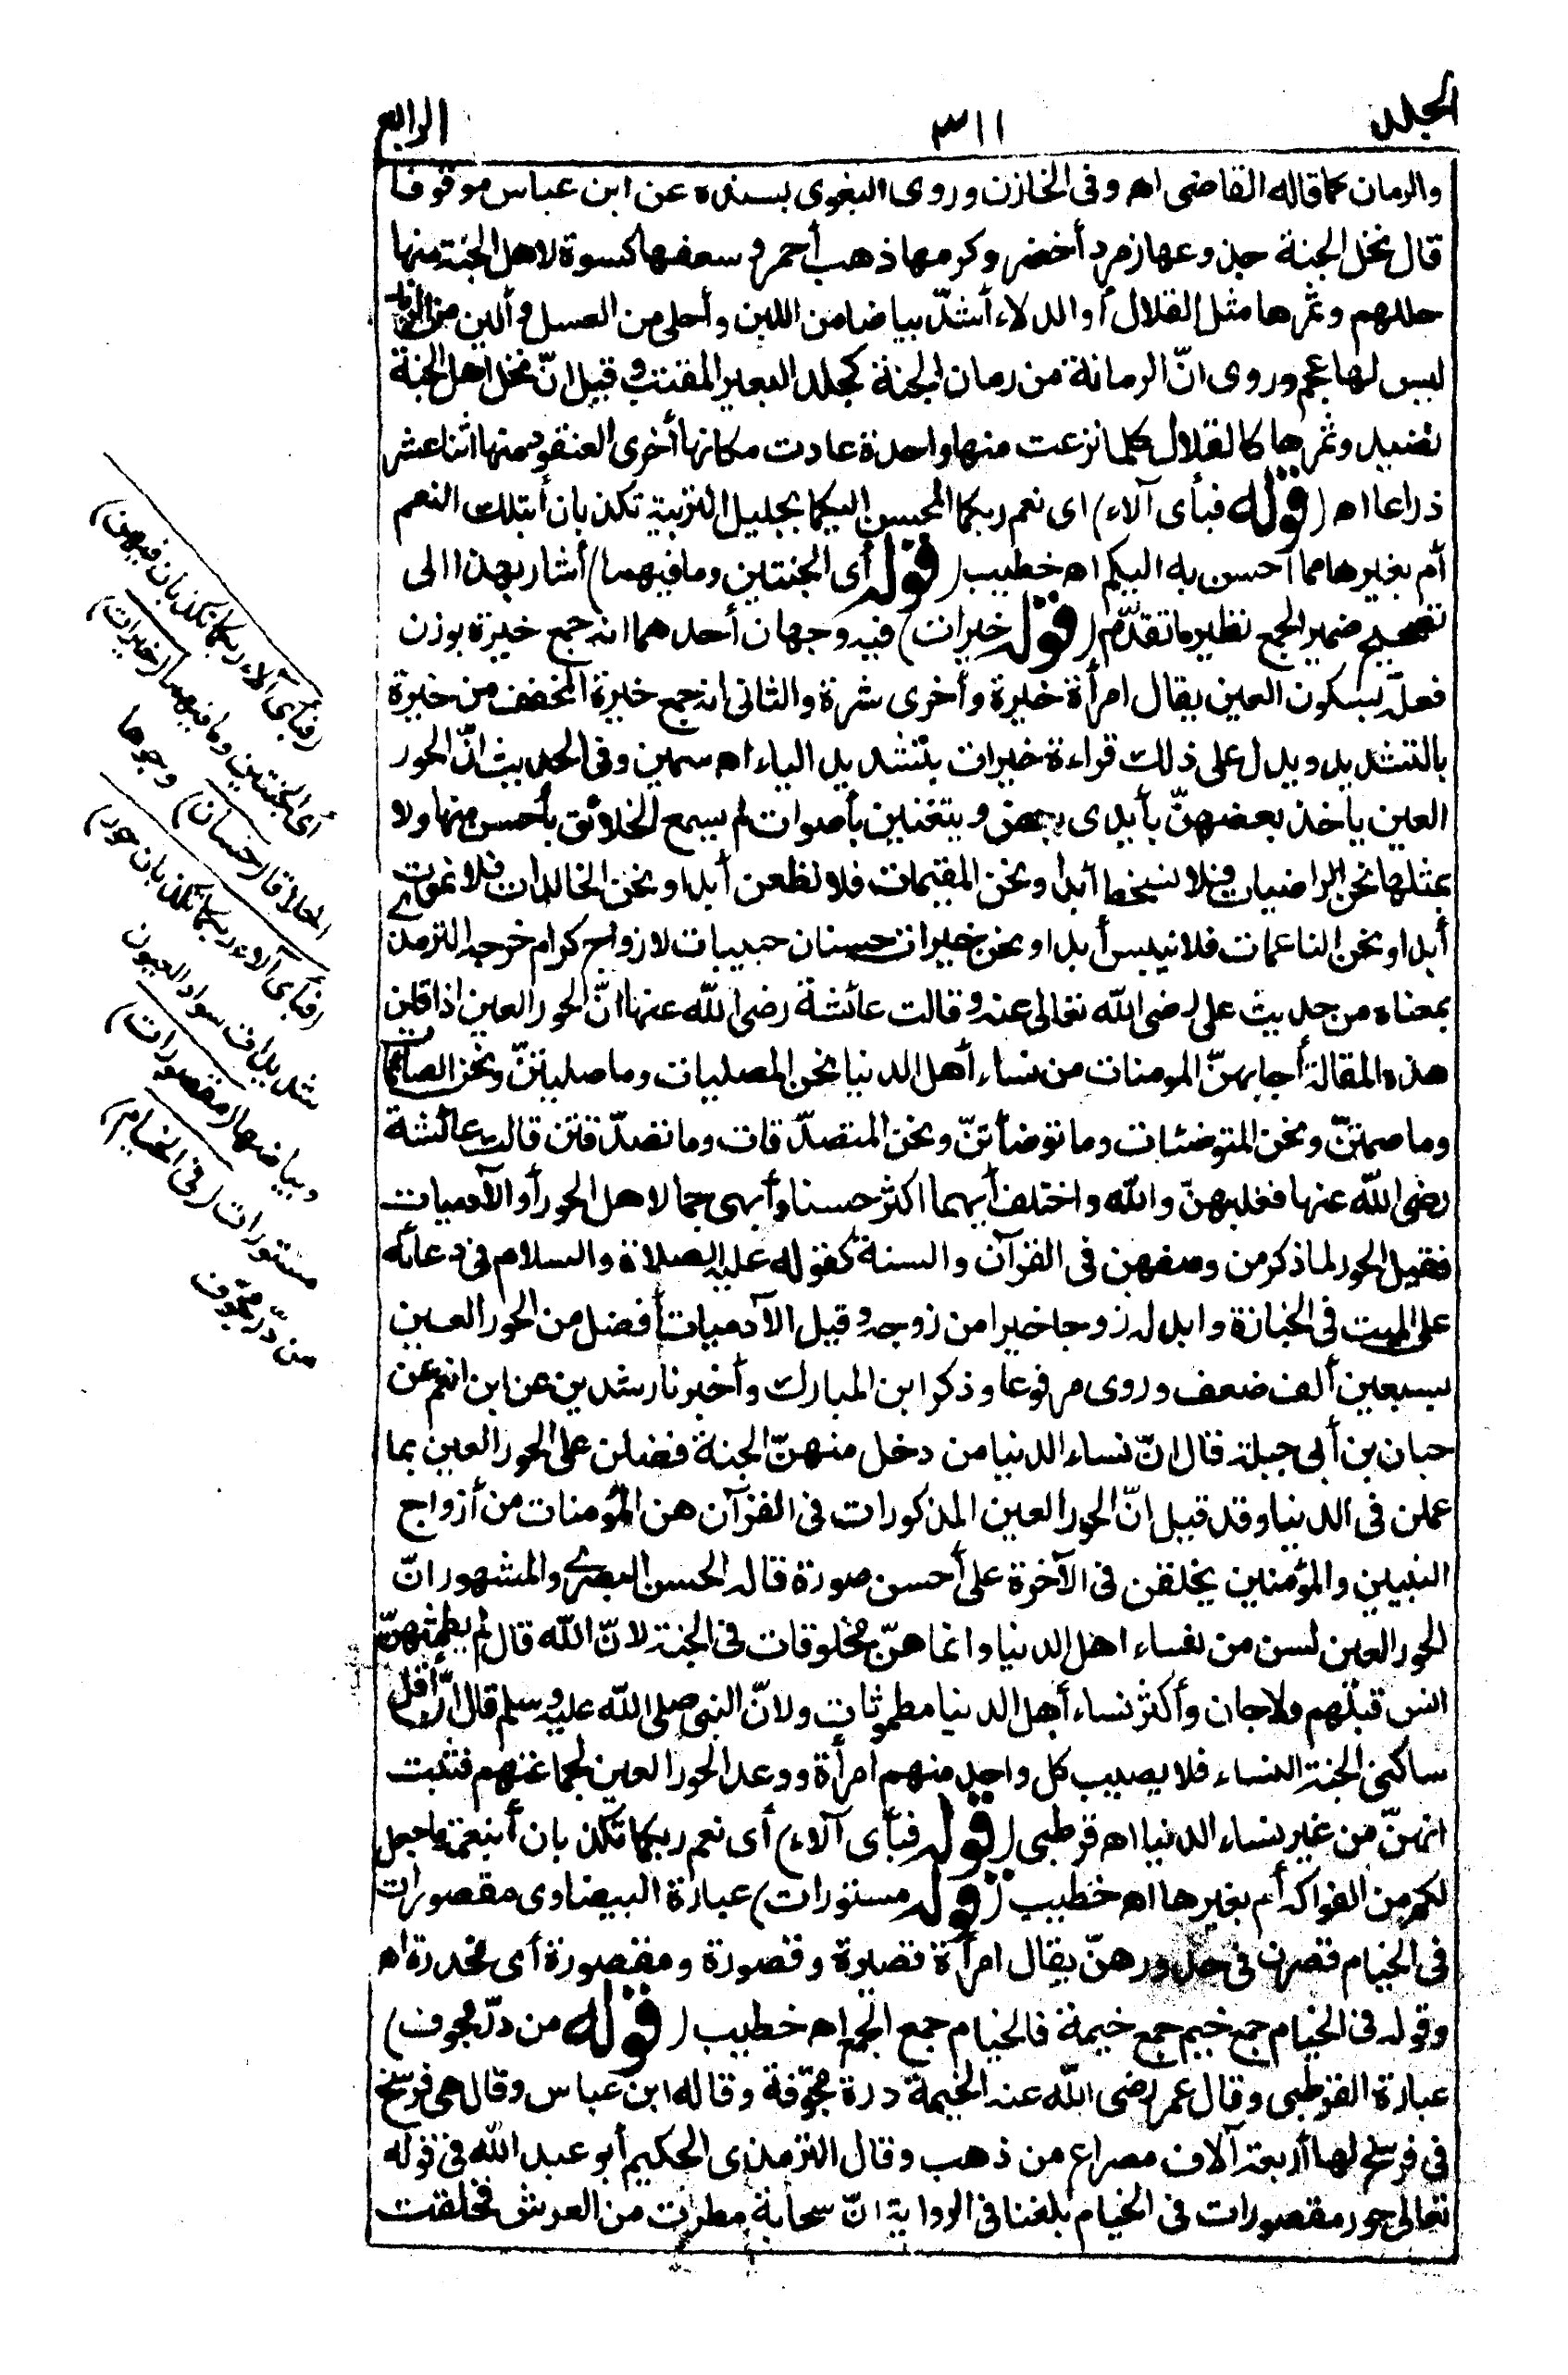 الجلد ٣١١ الرابع
والرمان كما قاله القاضى اھ وفى الخازن وروى البغوى بسنده عن ابن عباس موقوفا
قال نخل الجنة جذوعها زمرد أخضر وكرمها ذهب أحمر وسعفها كسوة لاهل الجنة منها
حللهم وثمرها مثل القلال أو الدلاء أشدّ بياضا من اللبن وأحلى من العسل وألين من الزبد
ليس لها عجم وروى انّ الرمانة من رمان الجنة كجلد البعير المقتب وقيل انّ نخل اهل الجنة
نضيد وثمرها كالقلال كلما نزعت منها واحدة عادت مكانها أخرى العنقود منها اثنا عشر
ذراعا اھ (قوله فبأى آلاء) اى نعم ربكما المحسن اليكما بجليل التربية تكذبان أبتلك النعم
أم بغيرها مما أحسن به اليكم اھ خطيب (قوله أى الجنتين وما فيهما) أشار بهذا الى
تصحيح ضمير الجمع نظير ما تقدّم (قوله خيرات) فيه وجهان أحدهما انه جمع خيرة بوزن
فعلة بسكون العين يقال امرأة خيرة وأخرى شرة والثانى انه جمع خيرة المخفف من خيرة
بالتشديد ويدل على ذلك قراءة خيرات بتشديد الياء اھ سمين وفى الحديث انّ الحور
العين يأخذ بعضهنّ بأيدى بعض ويتغنين بأصوات لم يسمع الخلائق بأحسن منها ولا
بمثلها نحن الراضيات فلا نسخط أبدا ونحن المقيمات فلا نظعن أبدا ونحن الخالدات فلا نموت
أبدا ونحن الناعمات فلا نيبس أبدا ونحن خيرات حسنان حبيبات لازواج كرام خرجه الترمذى
بمعناه من حديث على رضى الله تعالى عنه وقالت عائشة رضى الله عنها انّ الحور العين اذا قلن
هذه المقالة أجابهنّ المومنات من نساء أهل الدنيا نحن المصليات وما صليتنّ ونحن الصائمات
وما صمتنّ ونحن المتوضئات وما توضأتنّ ونحن المتصدّقات وما تصدّقتن قالت عائشة
رضى الله عنها فغلبهنّ والله واختلف أيهما اكثر حسنا وأبهى جمالا هل الحور أو الآدميات
فقيل الحور لما ذكر من وصفهن فى القرآن والسنة كقوله عليه الصلاة والسلام فى دعائه
على الميت فى الجنازة وابدله زوجا خيرا من زوجه وقيل الآدميات أفضل من الحور العين
بسبعين ألف ضعف وروى مرفوعا وذكر ابن المبارك وأخبرنا رشدين عن ابن انعم عن
حبان بن أبى جبلة قال انّ نساء الدنيا من دخل منهنّ الجنة فضلن على الحور العين بما
عملن فى الدنيا وقد قيل انّ الحور العين المذكورات فى القرآن هن المؤمنات من أزواج
النبيين والمؤمنين يخلقن فى الآخرة على أحسن صورة قاله الحسن البصرى والمشهور انّ
الحور العين لسن من نساء اهل الدنيا وانما هنّ مخلوقات فى الجنة لانّ الله قال لم يطمثهنّ
انس قبلهم ولا جان وأكثر نساء أهل الدنيا مطموثات ولانّ النبى صلى الله عليه وسلم قال انّ أقل
ساكنى الجنة النساء فلا يصيب كل واحد منهم امرأة ووعد الحور العين لجماعتهم فثبت
انهنّ من غير نساء الدنيا اھ قرطبى (قوله فبأى آلاء) أى نعم ربكما تكذبان أبنعمة ما جعل
لكم من الفواكه أم بغيرها اھ خطيب (قوله مستورات) عبارة البيضاوى مقصورات
فى الخيام قصرن فى خدورهنّ يقال امرأة قصيرة وقصورة ومقصورة أى مخدرة اھ
وقوله فى الخيام جمع خيم جمع خيمة فالخيام جمع الجمع اھ خطيب (قوله من درّ مجوف)
عبارة القرطبى وقال عمر رضى الله عنه الخيمة درة مجوّفة وقاله ابن عباس وقال هى فرسخ
فى فرسخ لها أربعة آلاف مصراع من ذهب وقال الترمذى الحكيم أبو عبد الله فى قوله
تعالى حور مقصورات فى الخيام بلغنا فى الرواية انّ سحابة مطرت من العرش فخلقت
(فبأى آلاء ربكما تكذبان فيهن)
أى الجنتين وما فيهما (خيرات)
اخلاقا (حسان) وجوها
(فبأى آلاء ربكما تكذبان حور)
شديدات سواد العيون
وبياضها (مقصورات)
مستورات (فى الخيام)
من درّ مجوّف